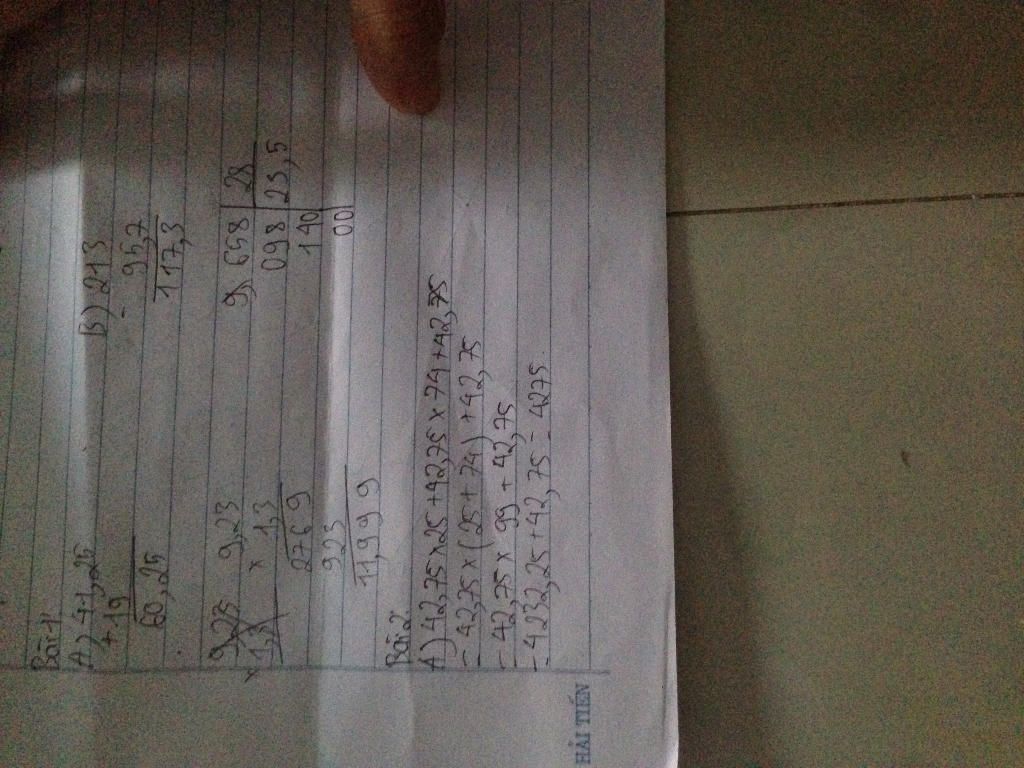 Bài 1
A) 41,25    B) 213
+ 19    - 95,7
60,25    117,3
9,23    9,23    658    28
x 13    x 1,3    098    23,5
2769    140
923    00
11,999
Bài 2
A) 42,75 x 25 + 42,75 x 74 + 42,75
= 42,75 x (25 + 74) + 42,75
= 42,75 x 99 + 42,75
= 4232,25 + 42,75 = 4275
HẢI TIẾN